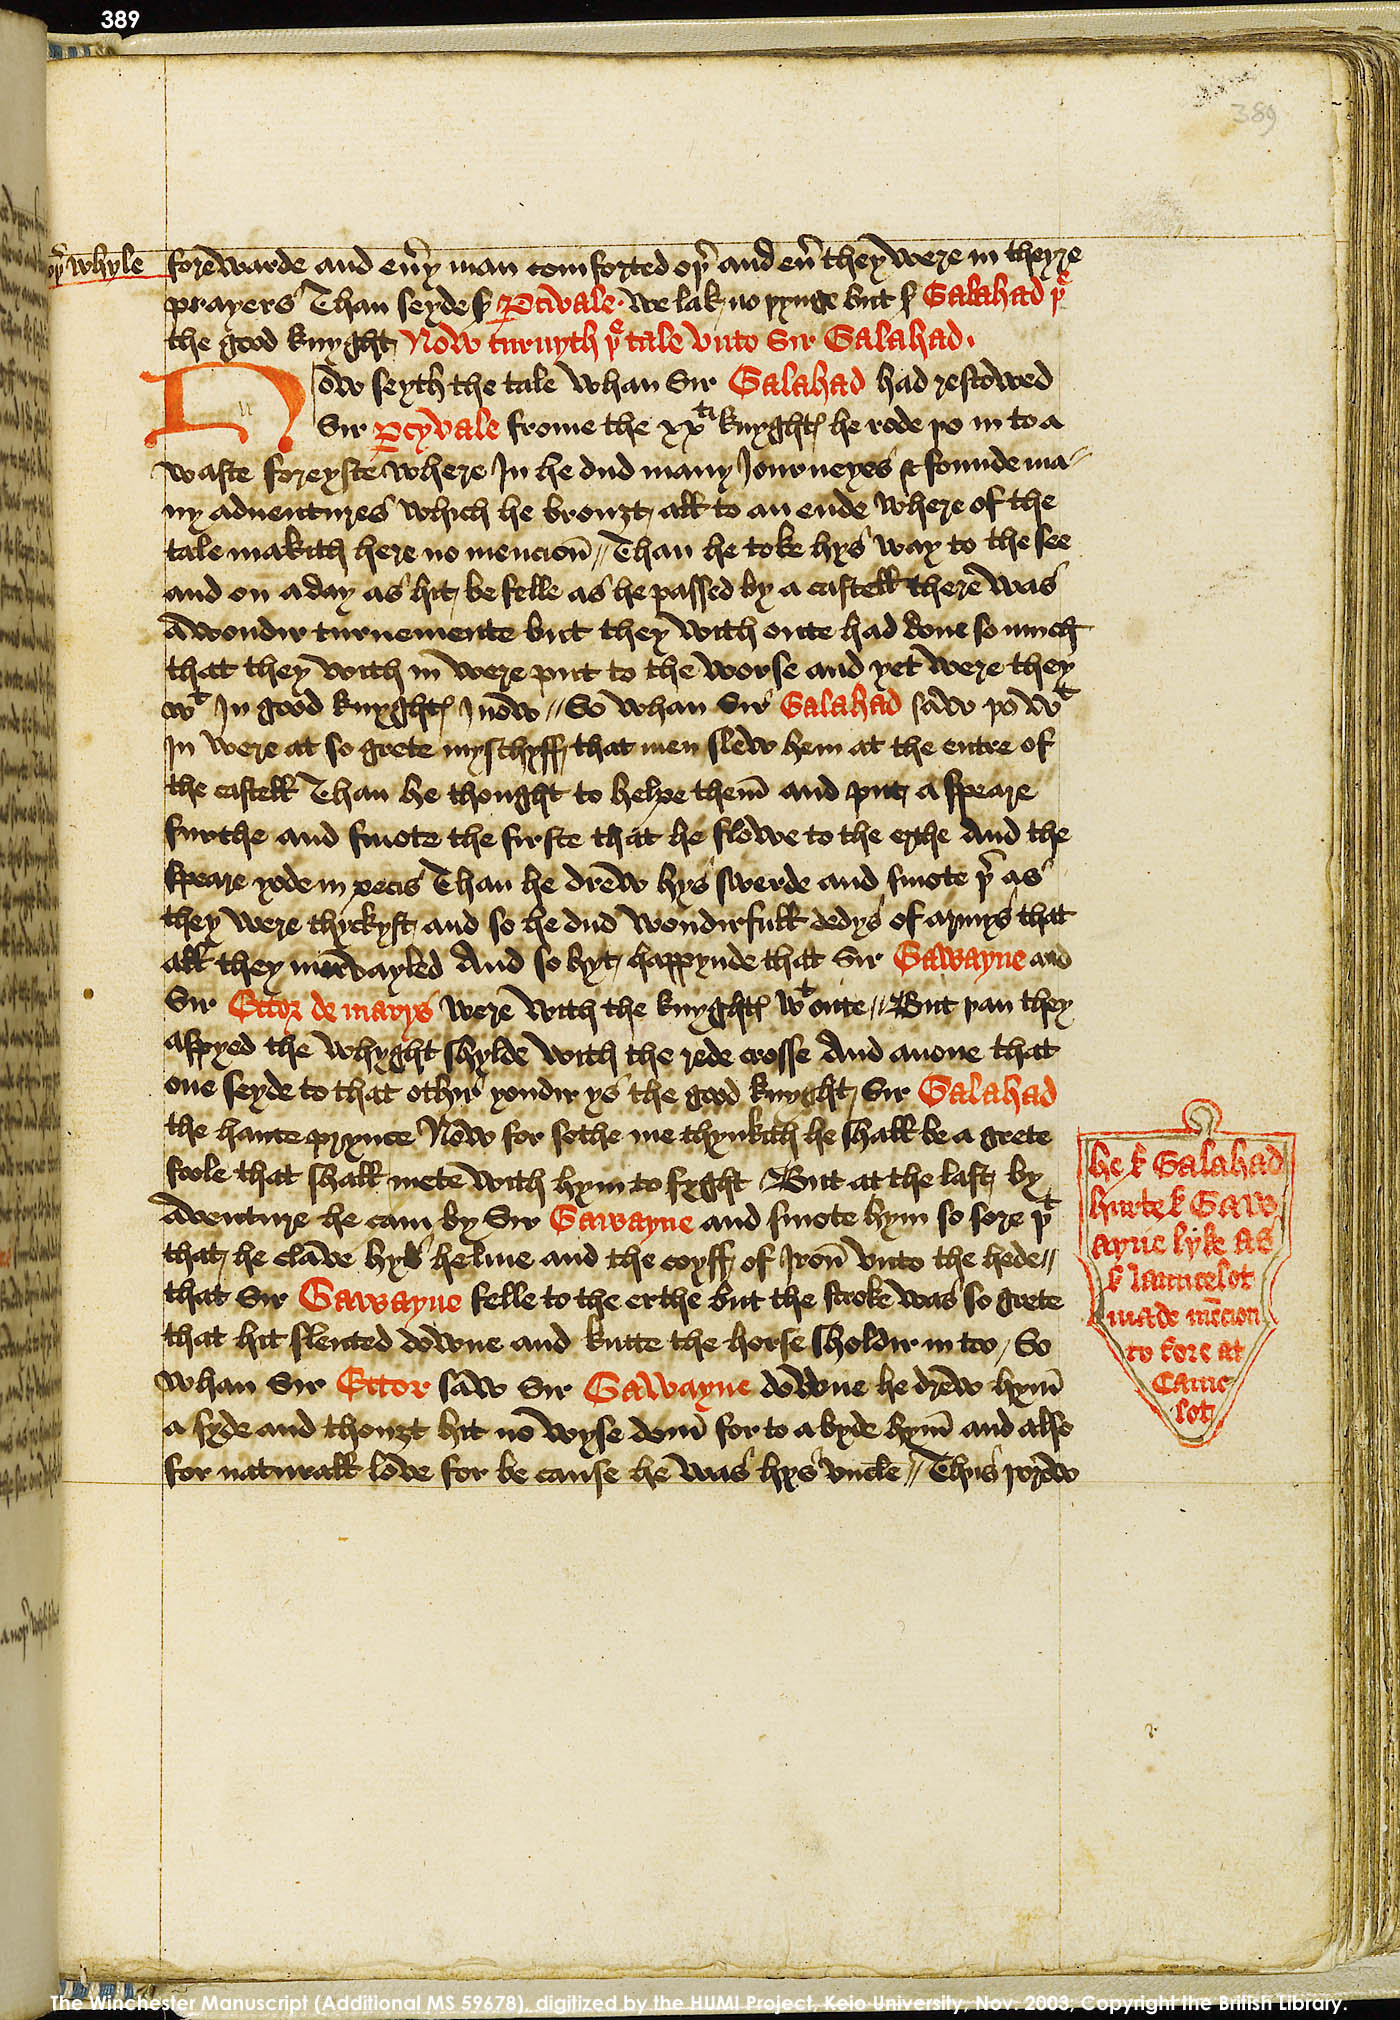 389
389
oþr whyle forewarde and eu͛y man comforted oþr and eu͛ they were in theyre
prayers Than seyde sr P̱civale we lak no þynge but sr Galahad þe
the good knyght Now turnyth þe tale vnto Sir Galahad.
Now seyth the tale whan Sir Galahad had rescowed
Sir P̱cyvale frome the xxti knyghtes he rode þo in to a
waste foreyste where In he dud many Journeyes & founde ma-
ny adventures which he brouȝt all to an ende where of the
tale makith here no mencion̄ // Than he toke hys way to the see
and on a day as hit be felle as he passed by a castell there was
a wondir turnemente but they with oute had done so much
that they with in were put to the worse and yet were they
wt In good knyghtes Inow // So whan Sir Galahad saw þo wt
In were at so grete myschyff that men slew hem at the entre of
the castell Than he thought to helpe them̄ and put a speare
furthe and smote the firste that he flowe to the erthe And the
speare yode in pecis Than he drew hys swerde and smote þr as
they were thyckyst and so he dud wondirfull dedys of armys that
all they mervayled And so hyt happynde that Sir Gawayne and
Sir Ector de marys were with the knyghtes wt oute // But þan they
aspyed the whyght shylde with the rede crosse And anone that
one seyde to that othir yondir ys the good knyght, Sir Galahad
the haute prynce Now for sothe me thynkith he shall be a grete
foole that shall mete with hym to fyght But at the last by
adventure he cam by Sir Gawayne and smote hym so sore þt
that he clave hys helme and the coyff of Iron̄ vnto the hede //
that Sir Gawayne felle to the erthe but the stroke was so grete
that hit slented downe and kutte the horse sholdir in too / So
whan Sir Ector saw Sir Gawayne downe he drew hym̄
a syde and thouȝt hit no wysedom̄ for to abyde hym̄ and also
for naturall love for be cause he was hys vncle // Thus þorow
he sr Galahad
hurte sr Gaw
ayne lyke as
sr launcelot
made mēcion
to fore at
Came
lot
The Winchester Manuscript (Additional MS 59678), digitized by the HUMI Project, Keio University, Nov. 2003; Copyright the British Library.